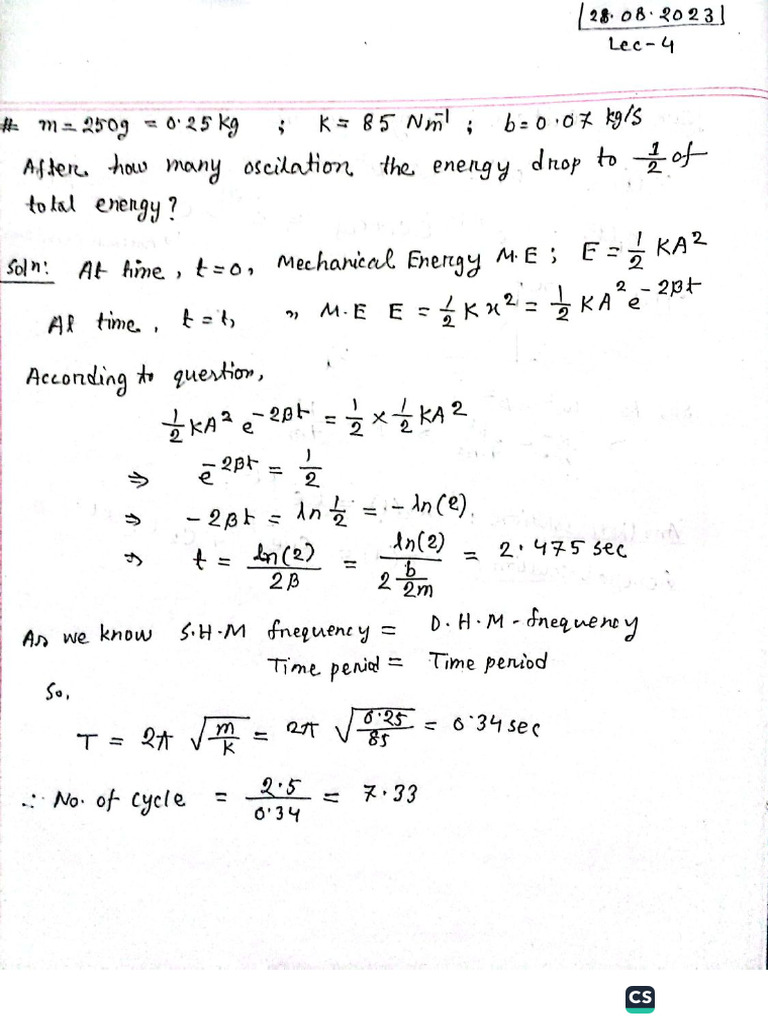 28.08.2023
Lec-4
# m = 250g = 0.25 kg ; K = 85 Nm⁻¹ ; b = 0.07 kg/s
After how many oscilation the energy drop to 1/2 of
total energy?
Soln: At time, t=0, Mechanical Energy M.E ; E = 1/2 KA²
At time, t=t, " M.E E = 1/2 Kx² = 1/2 KA² e^(-2βt)
According to question,
1/2 KA² e^(-2βt) = 1/2 × 1/2 KA²
⇒ e^(-2βt) = 1/2
⇒ -2βt = ln 1/2 = -ln(2).
⇒ t = ln(2)/2β = ln(2)/(2 b/2m) = 2.475 sec
As we know S.H.M frequency = D.H.M-frequency
Time period = Time period
So,
T = 2π √(m/k) = 2π √(0.25/85) = 0.34 sec
∴ No. of cycle = 2.5/0.34 = 7.33
CS